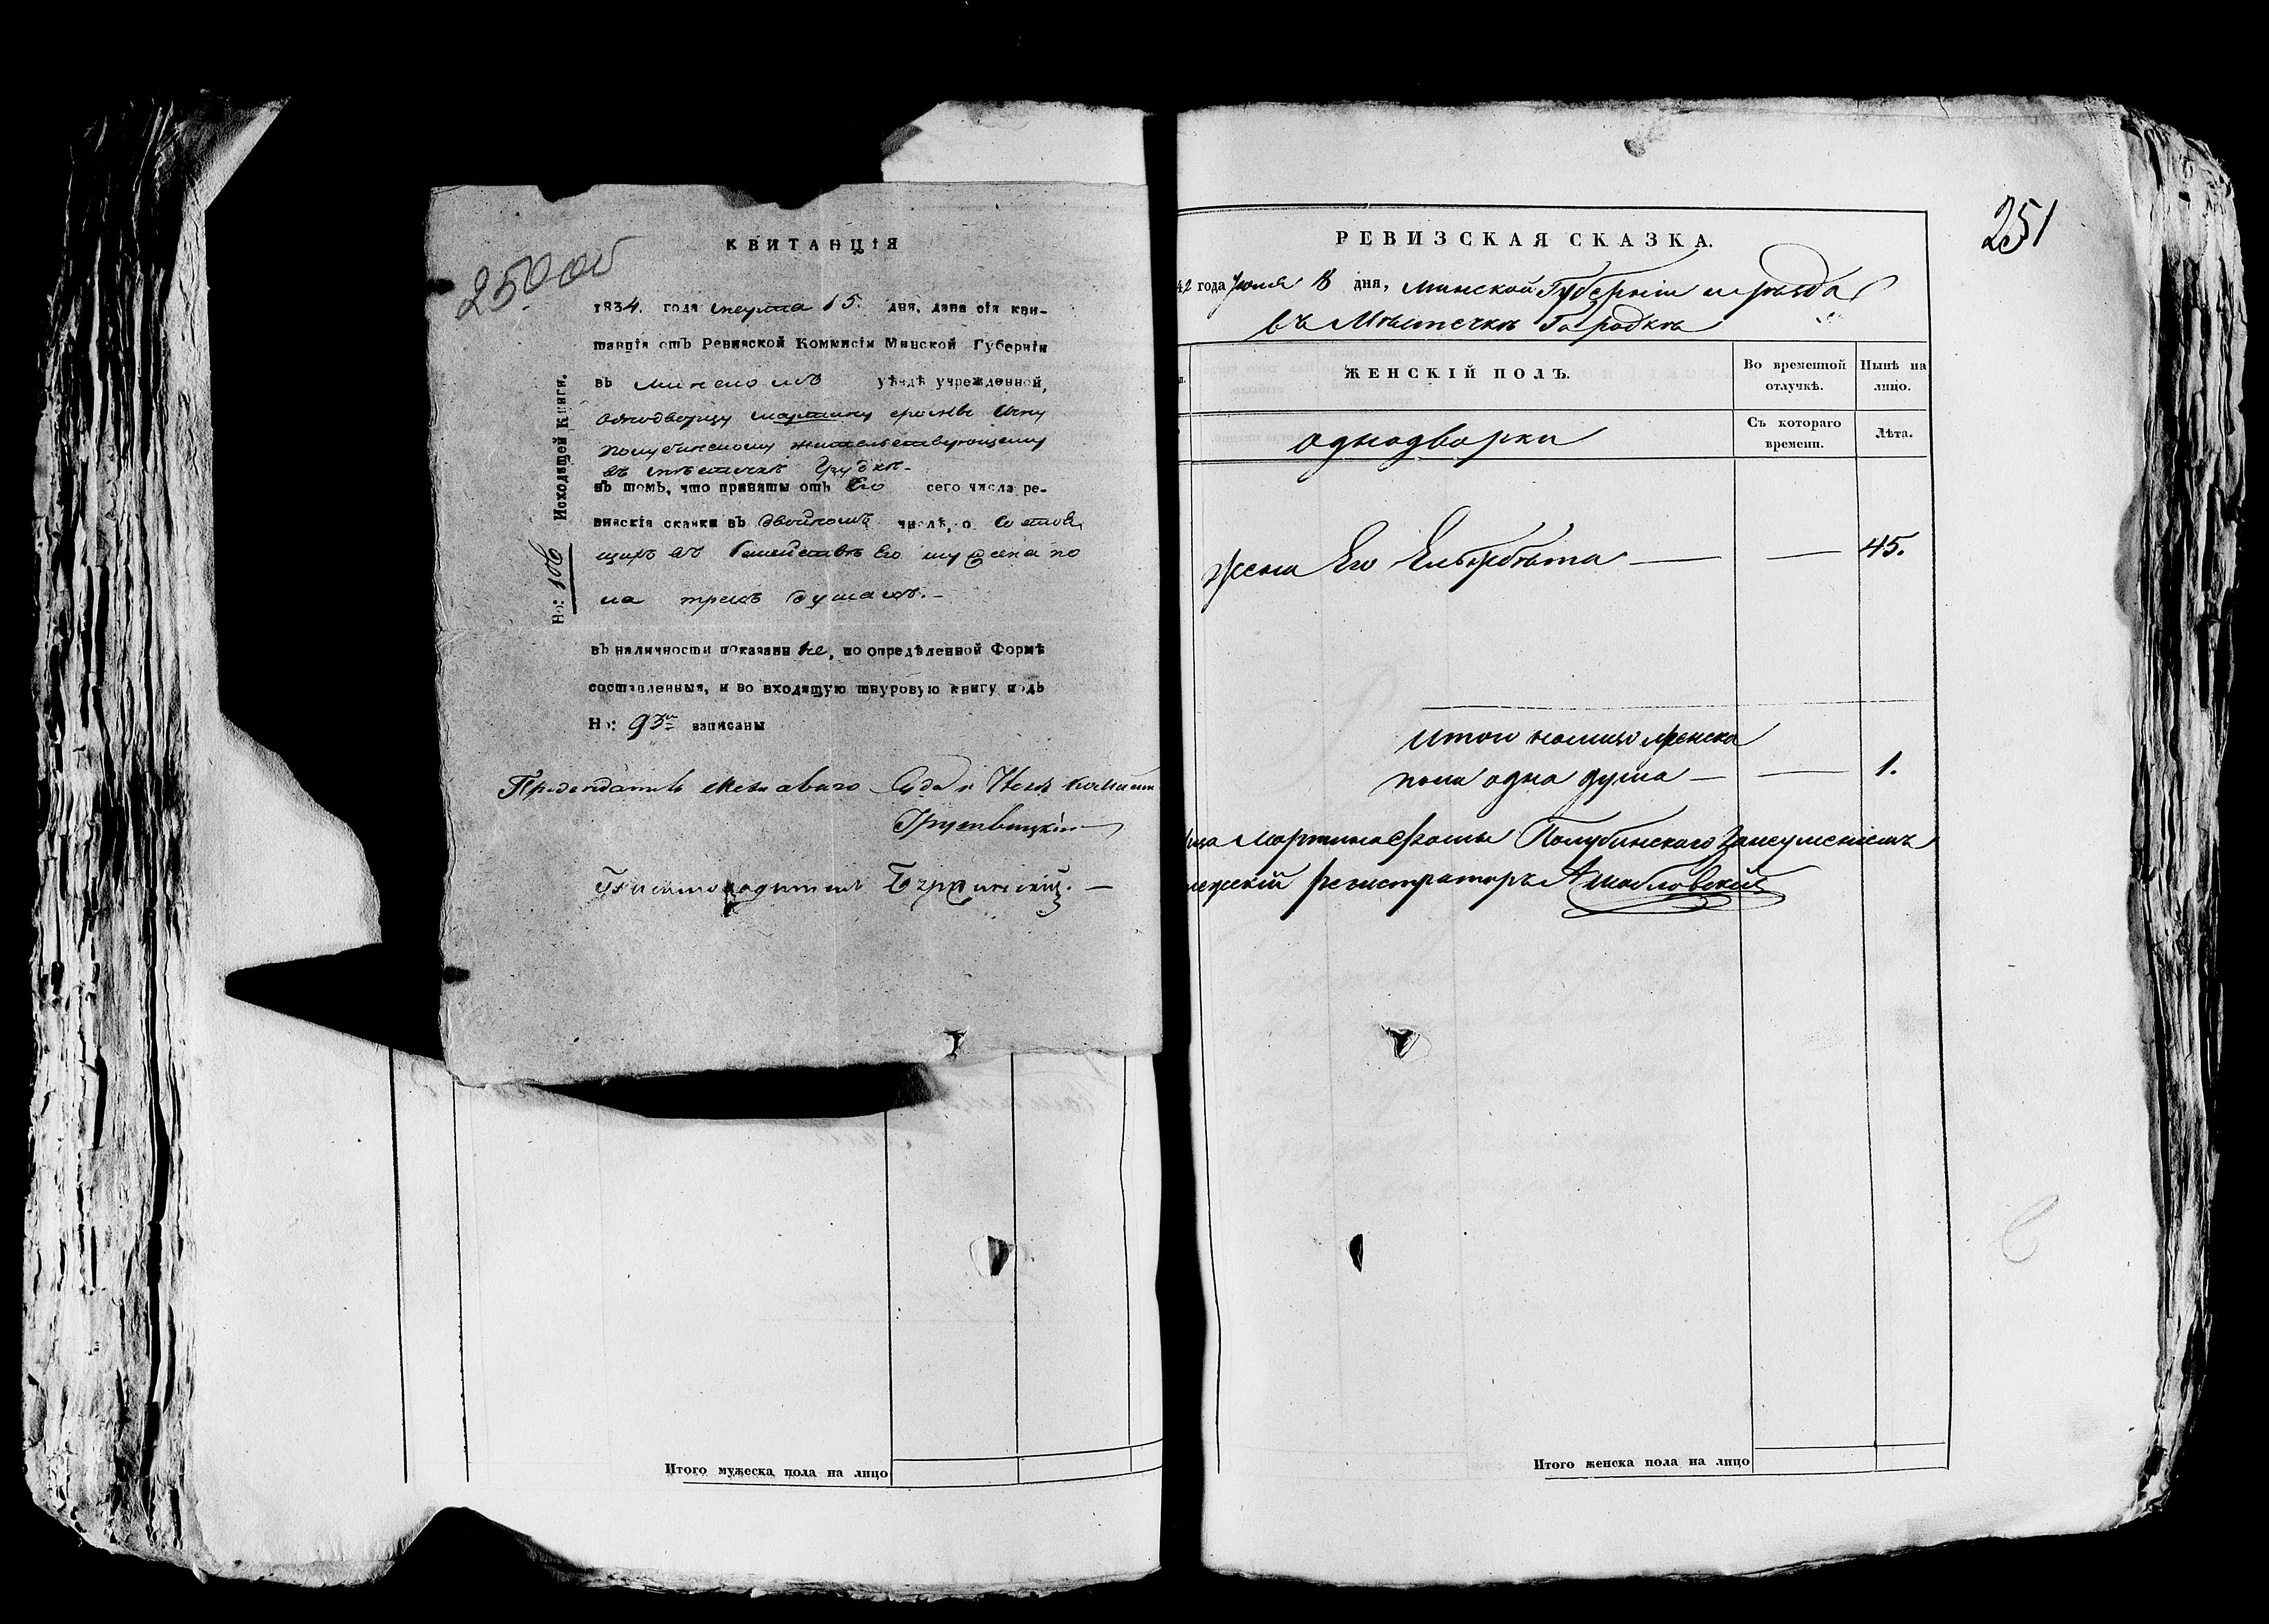 250 об
КВИТАНЦІЯ
1834. года марта 15. дня, дана сія кви-
танція отъ Ревизской Коммисіи Минской Губерніи
въ минскомъ уѣздѣ учрежденной,
однодворцу мартину сыну
полубинскому жительствующему
въ мѣстечкѣ
въ томъ, что приняты отъ Его сего числа ре-
визскія сказки въ двойномъ числѣ, о состоя
щихъ въ семействѣ Его мужеска по
ла трехъ душахъ.-
въ наличности показанные, по опредѣленной Формѣ
составленныя, и во входящую шнуровую книгу подъ
Но: 93 записаны
Но: 106 Исходящей Книги.
Предсѣдатель Суда и Членъ
Письмоводитель
Итого мужеска пола на лицо
251
РЕВИЗСКАЯ СКАЗКА.
42 года Іюля 8 дня, минской Губерніи и уѣзда
въ Мѣстечкѣ Городкѣ
ЖЕНСКІЙ ПОЛЪ.
Во временной отлучкѣ.
Нынѣ на лицо.
однодворки
Съ котораго времени.
Лѣта.
жена Его Ельжбѣта — — 45.
итого налицо женска
пола одна душа — — 1.
Мартина Полубинскаго
регистраторъ
Итого женска пола на лицо